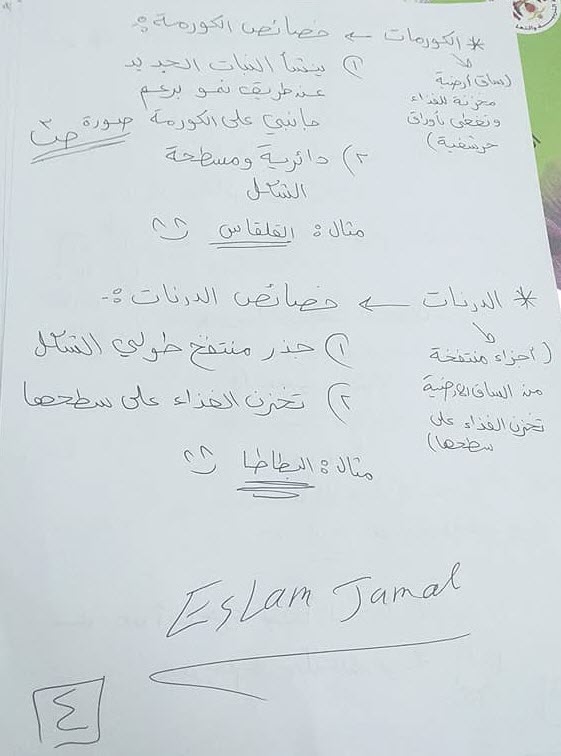 * الكورمات ← خصائص الكورمة :-
(ساق أرضية
مخزنة للغذاء
وتغطى بأوراق
حرشفية)
١) ينشأ النبات الجديد
عن طريق نمو برعم
جانبي على الكورمة صورة ص٣
٢) دائرية ومسطحة
الشكل
مثال : القلقاس ^^
* الدرنات ← خصائص الدرنات :-
(أجزاء منتفخة
من الساق الأرضية
تخزن الغذاء على
سطحها)
١) جذر منتفخ طولي الشكل
٢) تخزن الغذاء على سطحها
مثال : البطاطا ^^
Eslam Jamal
٤